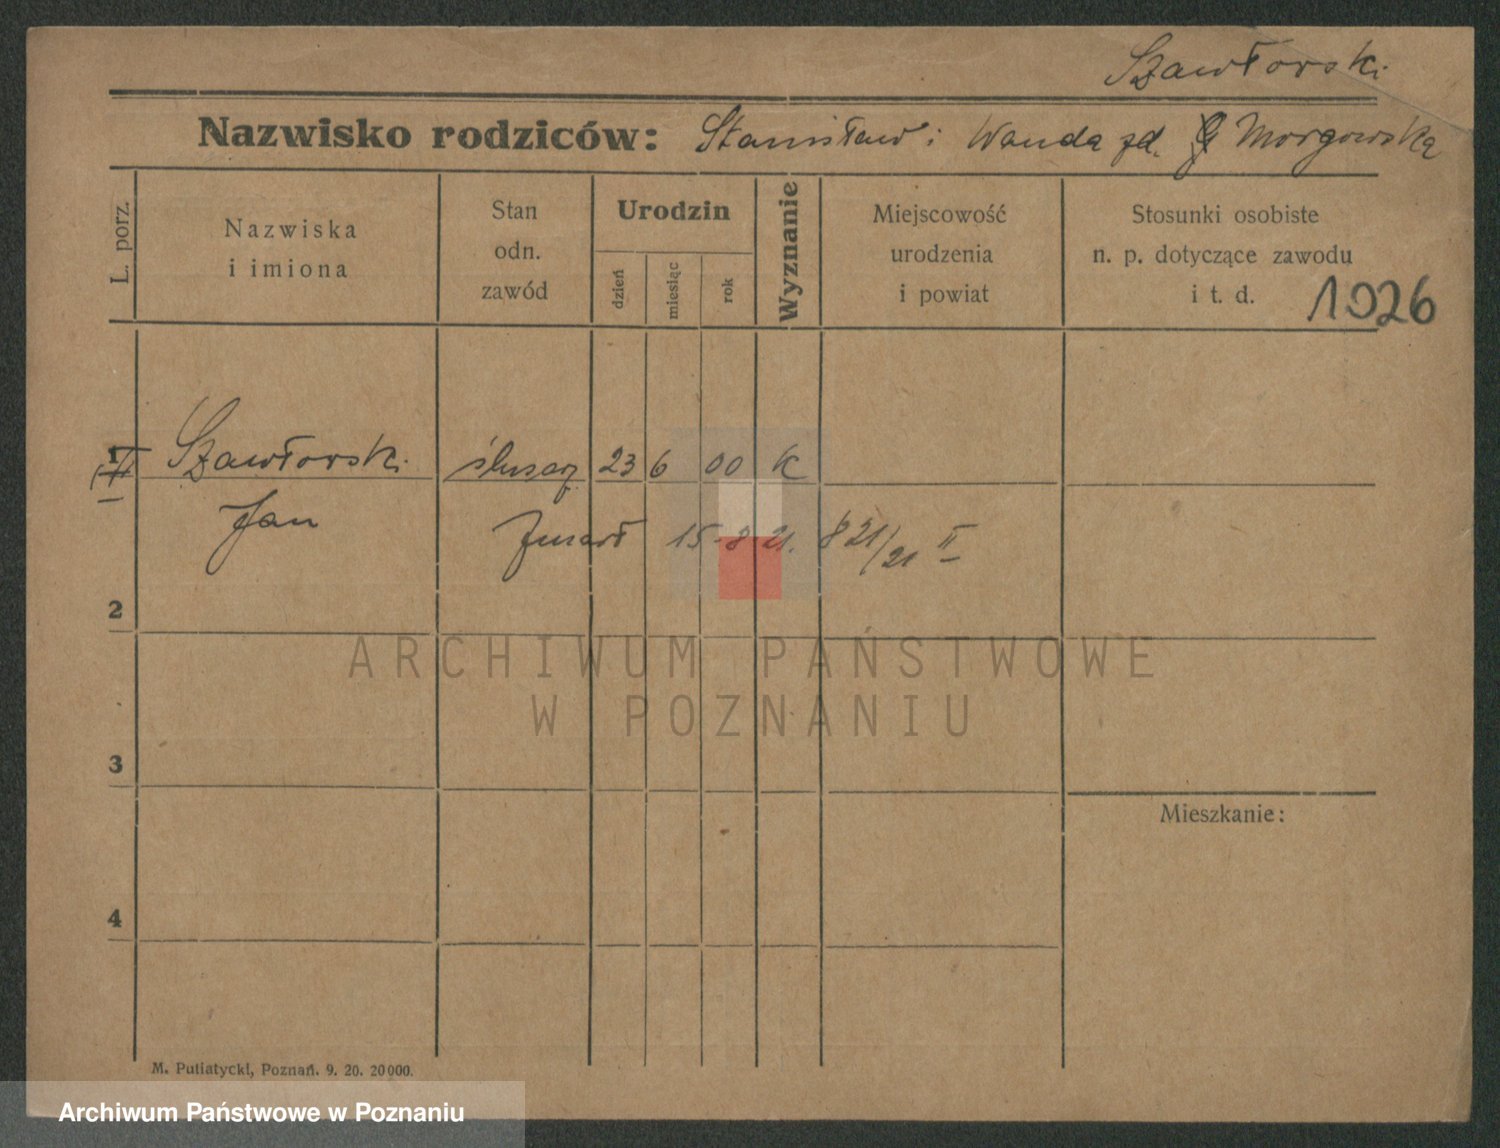 Szawłorski
Nazwisko rodziców: Stanisław i Wanda zd. Morgowska
L. porz.
Nazwiska
i imiona
Stan
odn.
zawód
Urodzin
dzień
miesiąc
rok
Wyznanie
Miejscowość
urodzenia
i powiat
Stosunki osobiste
n. p. dotyczące zawodu
i t. d.
1926
1
Szawłorski ślusarz 23 6 00 K
Jan zmarł 15-8 21. 821/21 II
2
3
4
Mieszkanie:
M. Putiatycki, Poznań. 9. 20. 20000.
ARCHIWUM PAŃSTWOWE
W POZNANIU
Archiwum Państwowe w Poznaniu